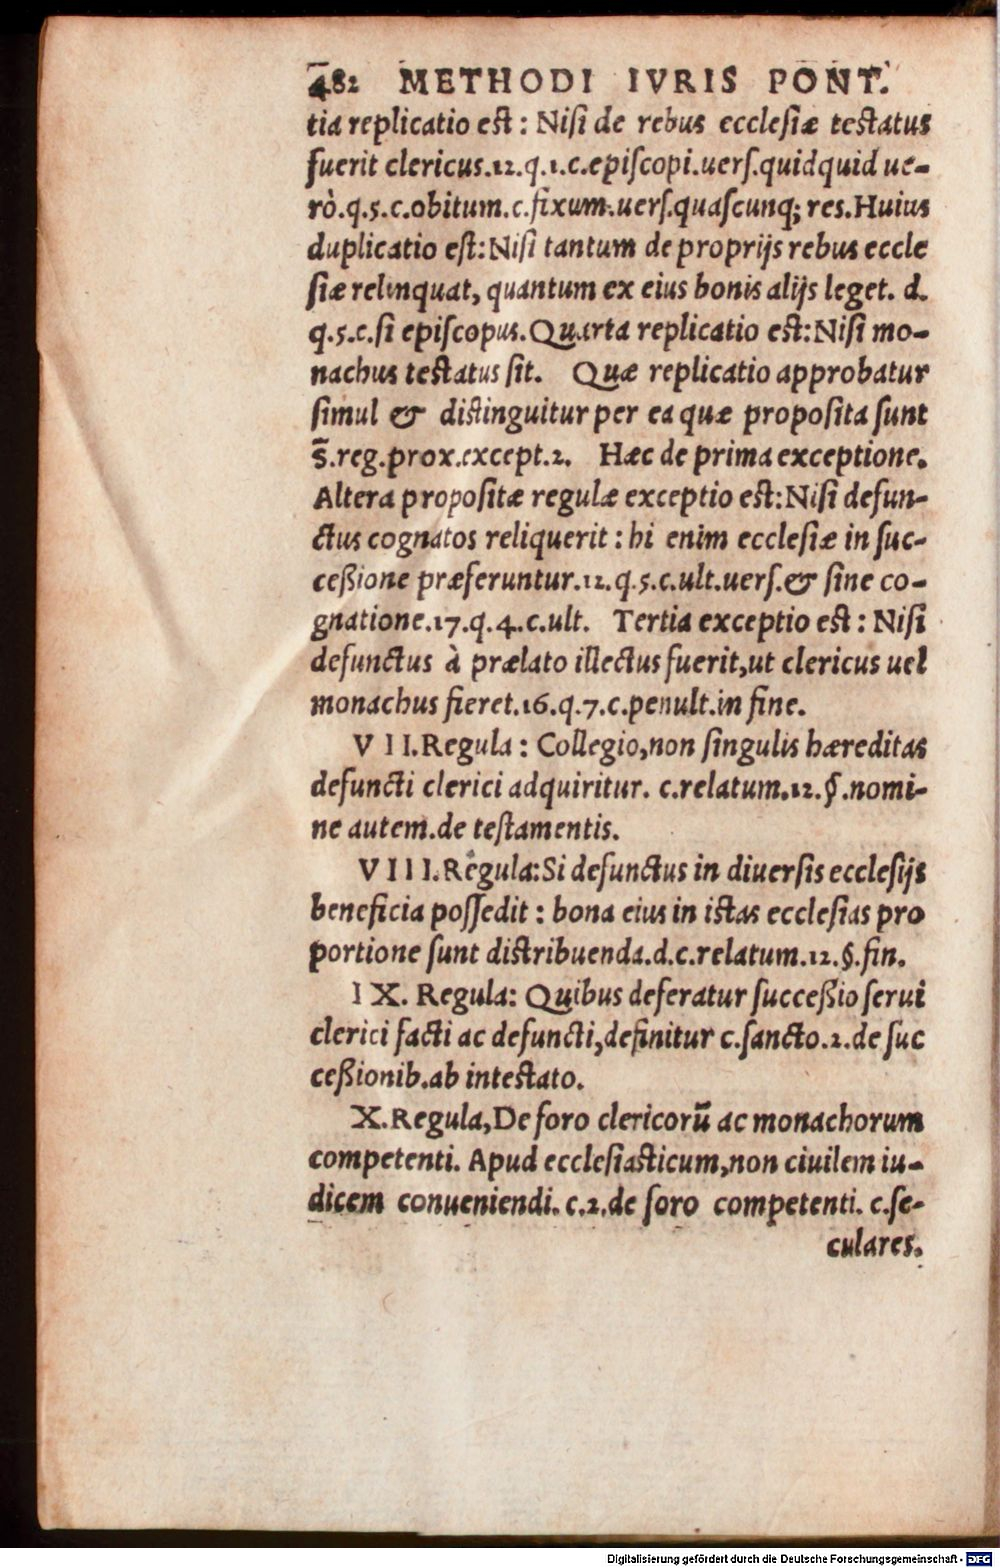 482 METHODI IVRIS PONT.
tia replicatio est: Nisi de rebus ecclesiæ testatus
fuerit clericus.12.q.1.c.episcopi.uers.quidquid ue-
rò.q.5.c.obitum.c.fixum.uers.quascunq; res.Huius
duplicatio est:Nisi tantum de proprijs rebus eccle
siæ relinquat, quantum ex eius bonis alijs leget. d.
q.5.c.si episcopus.Quarta replicatio est:Nisi mo-
nachus testatus sit. Quæ replicatio approbatur
simul & distinguitur per ea quæ proposita sunt
s̄.reg.prox.except.2. Hæc de prima exceptione.
Altera propositæ regulæ exceptio est:Nisi defun-
ctus cognatos reliquerit: hi enim ecclesiæ in suc-
ceßione præferuntur.12.q.5.c.ult.uers.& sine co-
gnatione.17.q.4.c.ult. Tertia exceptio est: Nisi
defunctus à prælato illectus fuerit,ut clericus uel
monachus fieret.16.q.7.c.penult.in fine.
VII.Regula: Collegio,non singulis hæreditas
defuncti clerici adquiritur. c.relatum.12.§.nomi-
ne autem.de testamentis.
VIII.Regula:Si defunctus in diuersis ecclesijs
beneficia possedit: bona eius in istas ecclesias pro
portione sunt distribuenda.d.c.relatum.12.§.fin.
IX. Regula: Quibus deferatur succeßio serui
clerici facti ac defuncti,definitur c.sancto.2.de suc
ceßionib.ab intestato.
X.Regula,De foro clericorū ac monachorum
competenti. Apud ecclesiasticum,non ciuilem iu-
dicem conueniendi.c.2.de foro competenti. c.se-
culares.
Digitalisierung gefördert durch die Deutsche Forschungsgemeinschaft - DFG